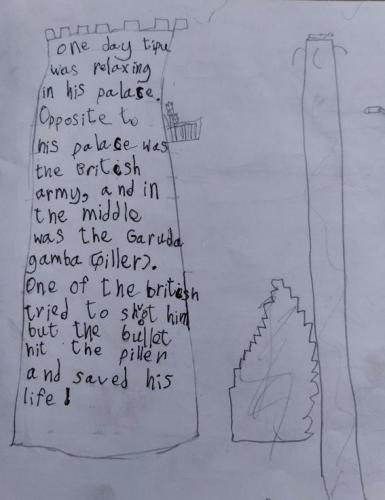 one day tipu
was relaxing
in his palace.
Opposite to
his palace was
the British
army, and in
the middle
was the Garuda
gamba (piller).
One of the british
tried to shot him
but the bullet
hit the piller
and saved his
life !